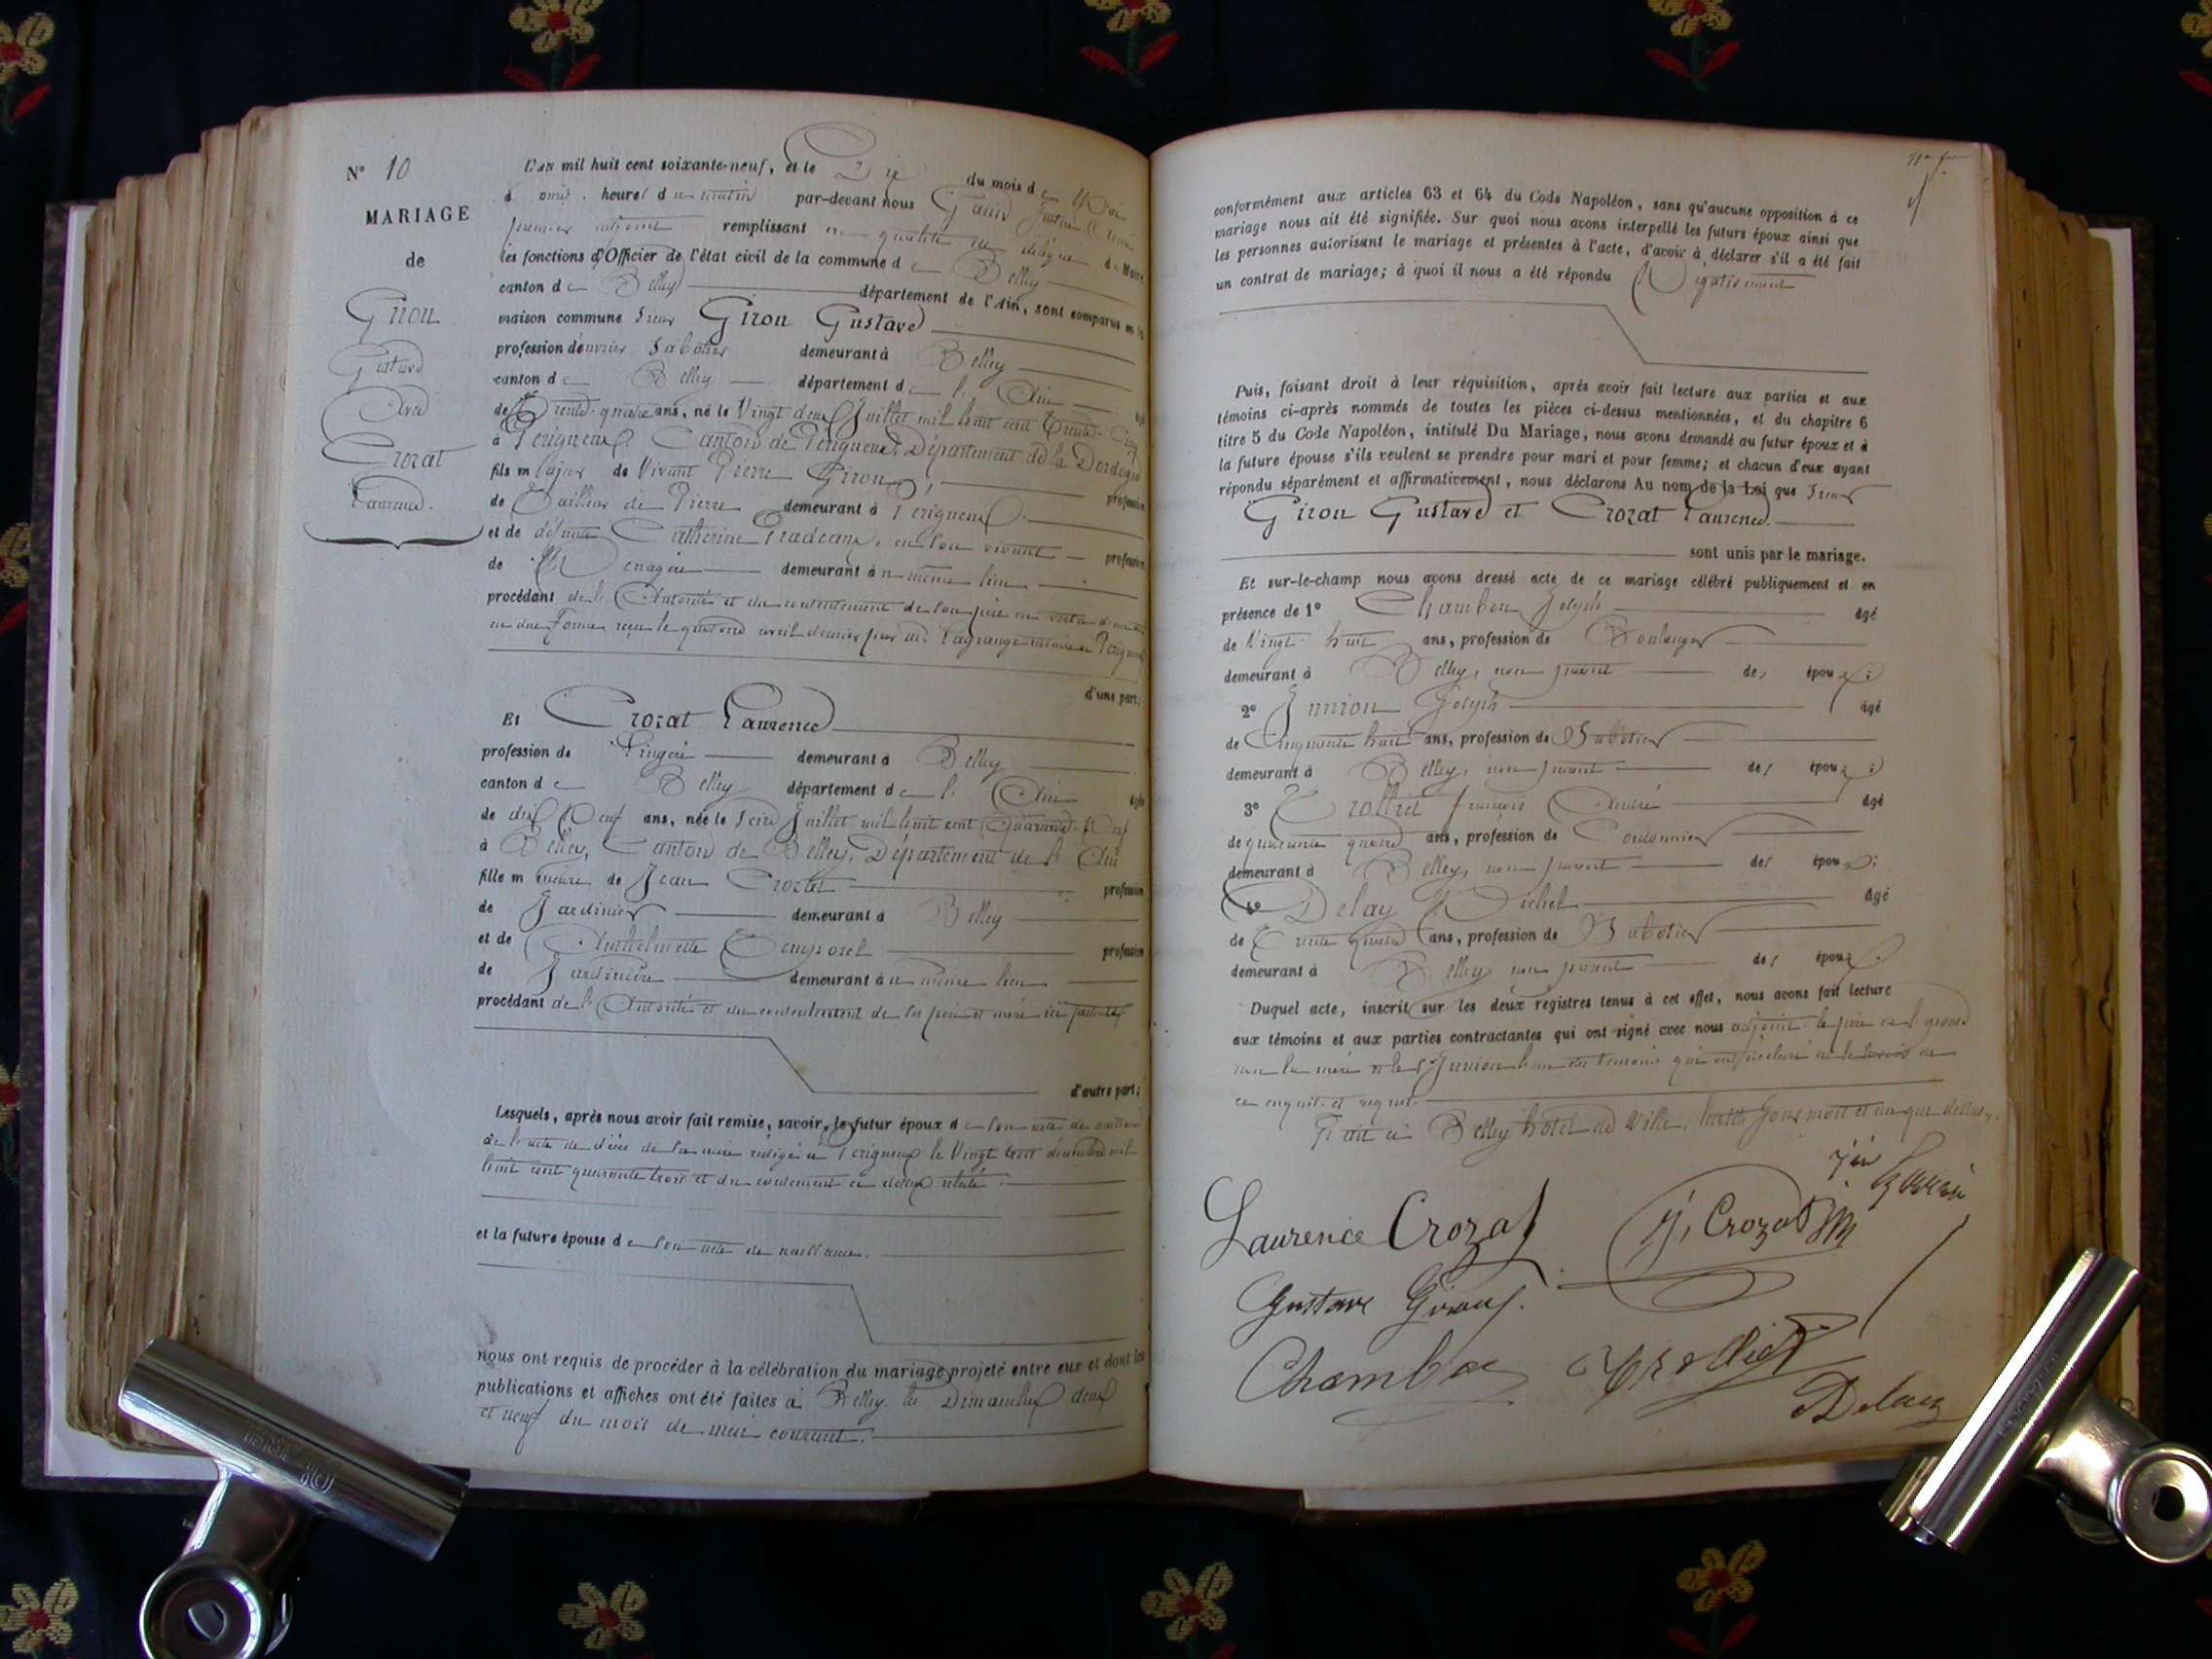 N° 10
MARIAGE
de
Girou
Gustave
Avec
Crozat
Laurence.
L'AN mil huit cent soixante-neuf, et le Dix du mois de Mai
à onze heures du matin par-devant nous
premier adjoint remplissant en qualité de délégué du Maire
les fonctions d'Officier de l'état civil de la commune de Belley
canton de Belley département de l'Ain, sont comparus en la
maison commune Sieur Girou Gustave
profession d'ouvrier Sabotier demeurant à Belley
canton de Belley département de l'Ain âgé
de Trente-quatre ans, né le Vingt deux Juillet mil huit cent Trente-
à Périgueux, Canton de Périgueux, Département de la Dordogne
fils majeur de Vivant Pierre Girou, profession
de Tailleur de Pierre demeurant à Périgueux
et de défunte Catherine Pradeaux, en son vivant profession
de Ménagère demeurant au même lieu
procédant de l'Autorité et du consentement de son père en vertu d'un acte
en due Forme reçu le quatorze avril dernier par Me Lagrange notaire à Périgueux
d'une part;
Et Crozat Laurence
profession de Lingère demeurant à Belley
canton de Belley département de l'Ain âgée
de dix Neuf ans, née le Seize Juillet mil huit cent Quarante-Neuf
à Belley, Canton de Belley, Département de l'Ain
fille mineure de Jean Crozet profession
de Jardinier demeurant à Belley
et de Anthelmette Temporel profession
de Jardinière demeurant au même lieu
procédant de l'Autorité et du consentement de ses père et mère ici présents
d'autre part;
Lesquels, après nous avoir fait remise, savoir, le futur époux de son acte de naissance
de l'acte de décès de sa mère rédigé à Périgueux le Vingt trois décembre mil
huit cent quarante trois et du consentement ci dessus relaté.
et la future épouse de son acte de naissance.
nous ont requis de procéder à la célébration du mariage projeté entre eux et dont les
publications et affiches ont été faites à Belley les Dimanches deux
et neuf du mois de mai courant.
conformément aux articles 63 et 64 du Code Napoléon, sans qu'aucune opposition à ce
mariage nous ait été signifiée. Sur quoi nous avons interpellé les futurs époux ainsi que
les personnes autorisant le mariage et présentes à l'acte, d'avoir à déclarer s'il a été fait
un contrat de mariage; à quoi il nous a été répondu Négativement
Puis, faisant droit à leur réquisition, après avoir fait lecture aux parties et aux
témoins ci-après nommés de toutes les pièces ci-dessus mentionnées, et du chapitre 6
titre 5 du Code Napoléon, intitulé Du Mariage, nous avons demandé au futur époux et à
la future épouse s'ils veulent se prendre pour mari et pour femme; et chacun d'eux ayant
répondu séparément et affirmativement, nous déclarons Au nom de la Loi que Sieur
Girou Gustave et Crozat Laurence.
sont unis par le mariage.
Et sur-le-champ nous avons dressé acte de ce mariage célébré publiquement et en
présence de 1° Chambou Joseph âgé
de Vingt-huit ans, profession de Boulanger
demeurant à Belley, non parent des époux;
2° Junion Joseph âgé
de Cinquante huit ans, profession de Sabotier
demeurant à Belley, non parent des époux;
3° Trolliet François André âgé
de quarante quatre ans, profession de Cordonnier
demeurant à Belley, non parent des époux;
4° Delay Michel âgé
de Trente quatre ans, profession de Sabotier
demeurant à Belley non parent des époux.
Duquel acte, inscrit sur les deux registres tenus à cet effet, nous avons fait lecture
aux témoins et aux parties contractantes qui ont signé avec nous adjoint le père
non la mère et le Sr Junion l'un des témoins qui ont déclaré ne le savoir de
ce enquis et requis.
Fait à Belley hôtel de Ville, les jour mois et an que dessus.
Laurence Crozat
J, Crozat
Gustave Girou
Chambou
Trolliet
Delay